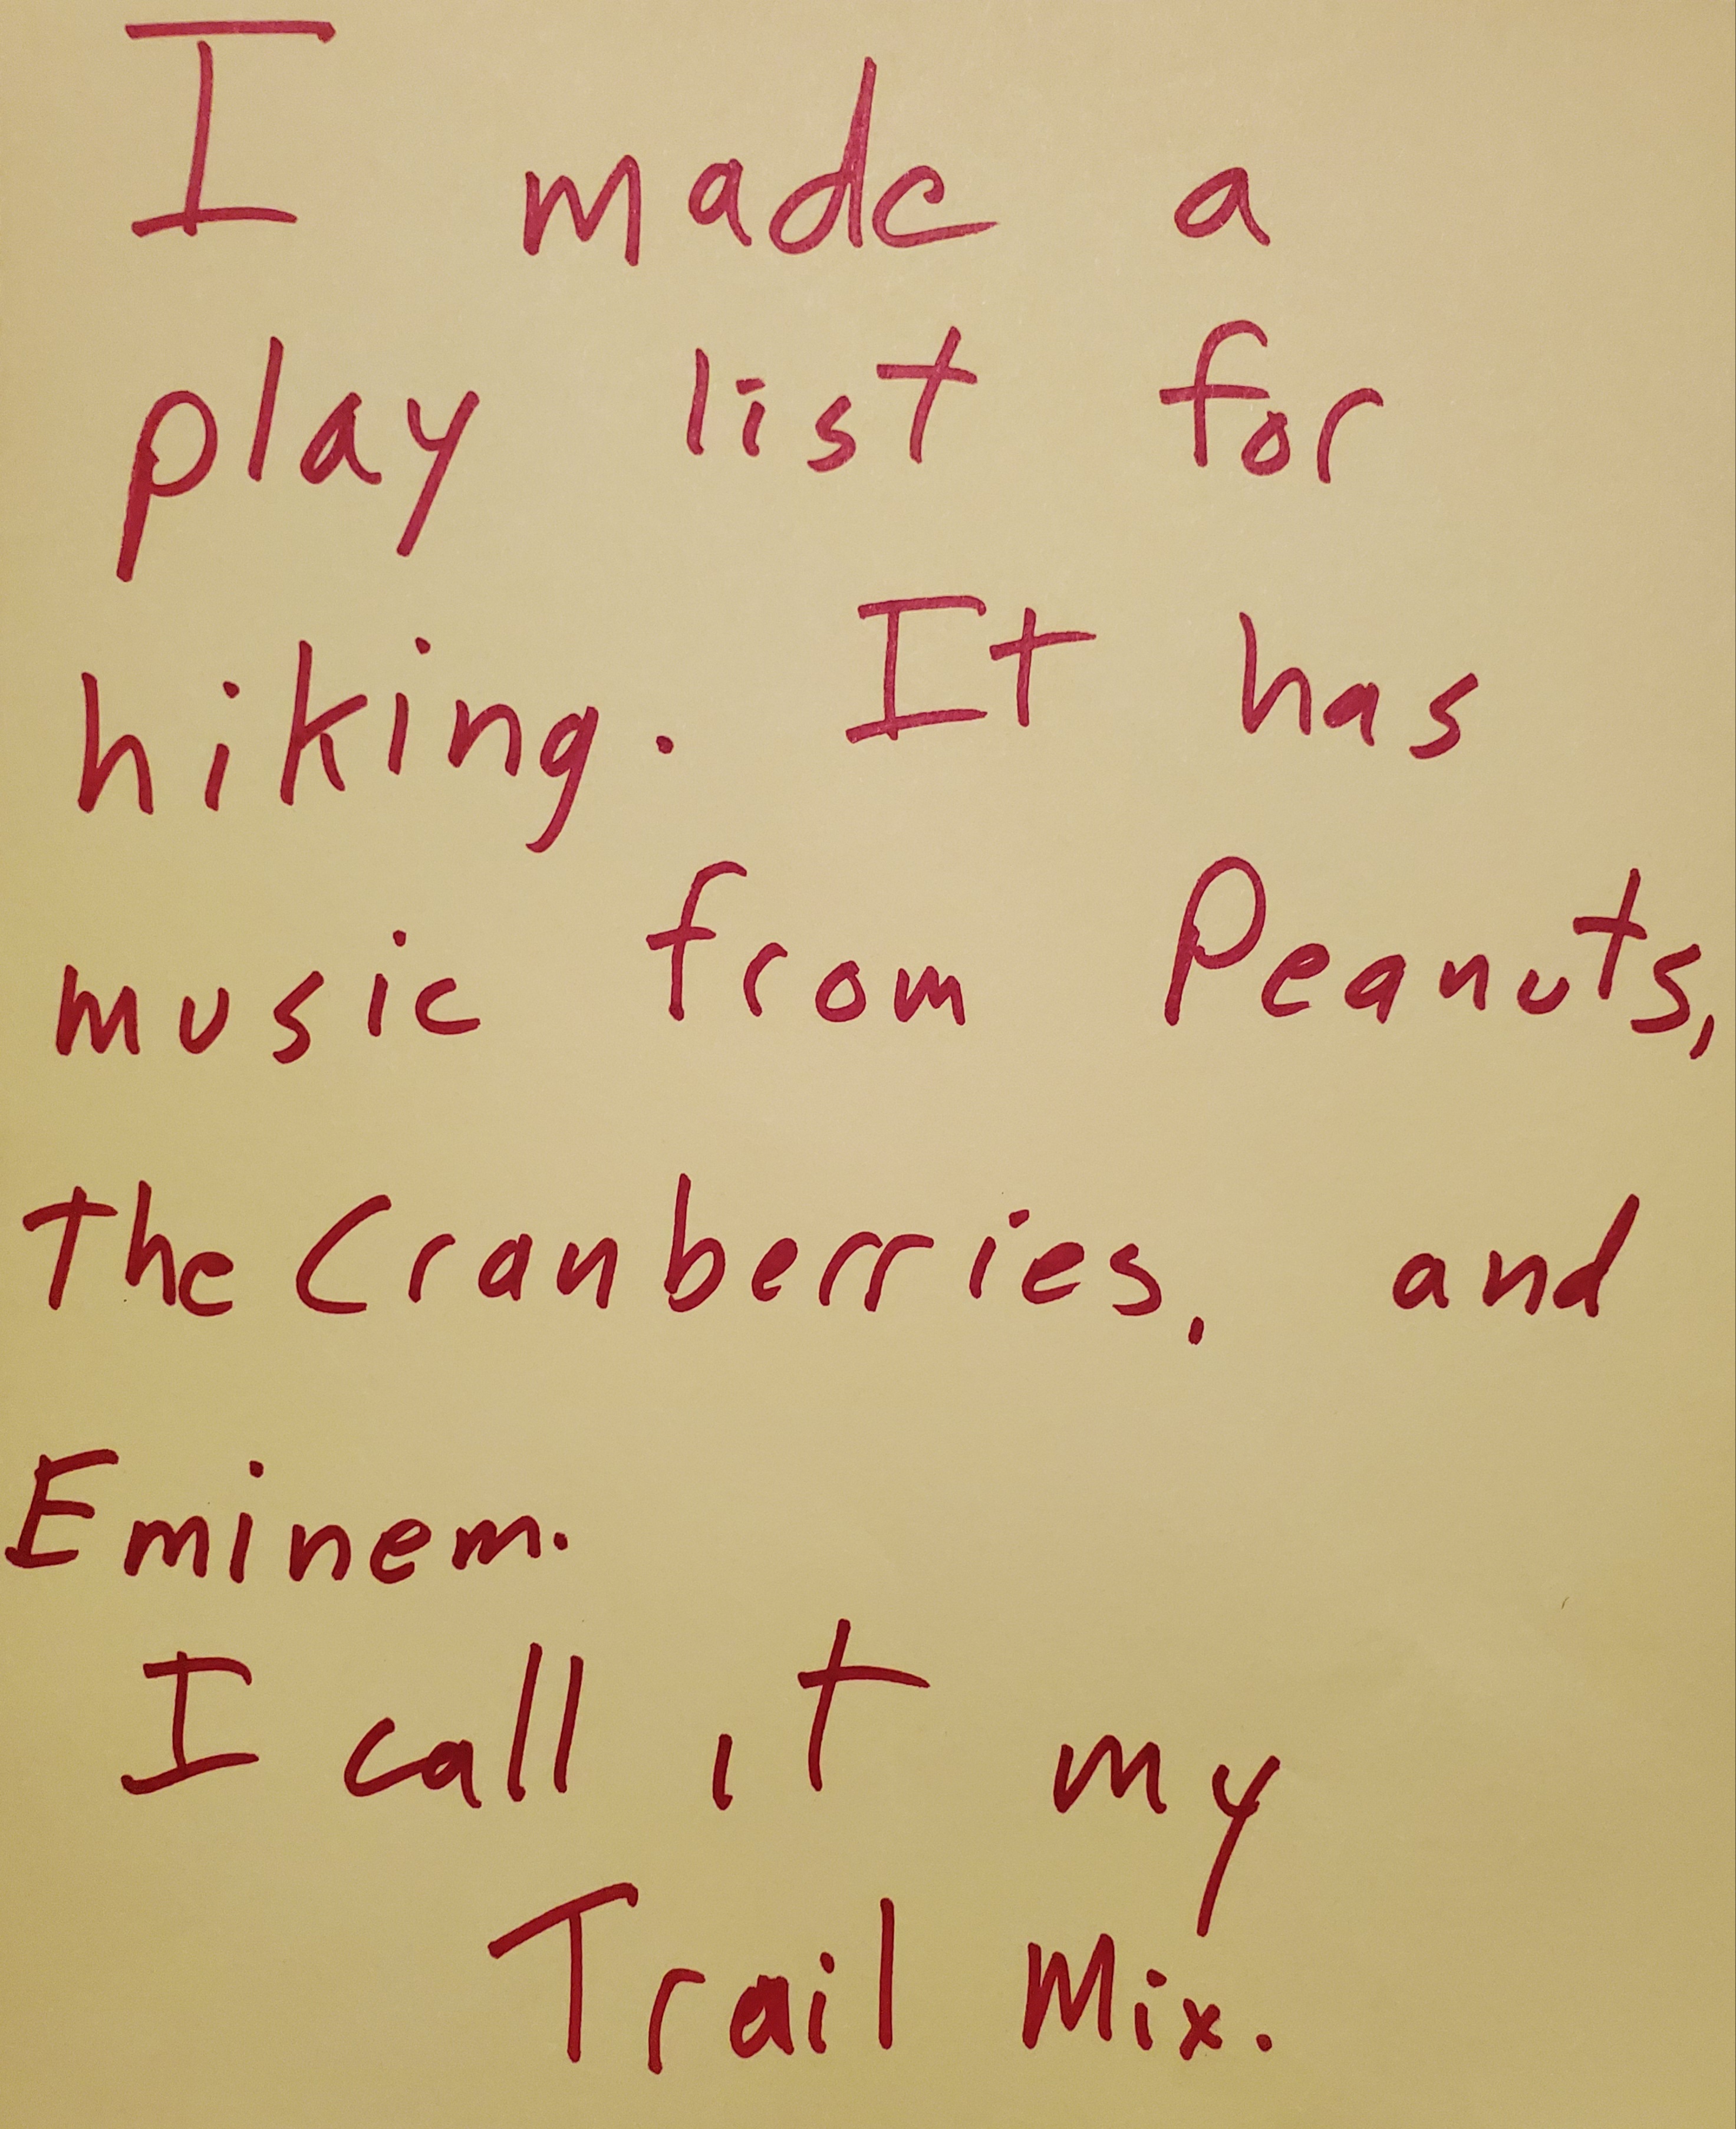 I made a
play list for
hiking. It has
music from Peanuts,
the Cranberries, and
Eminem.
I call it my
Trail Mix.